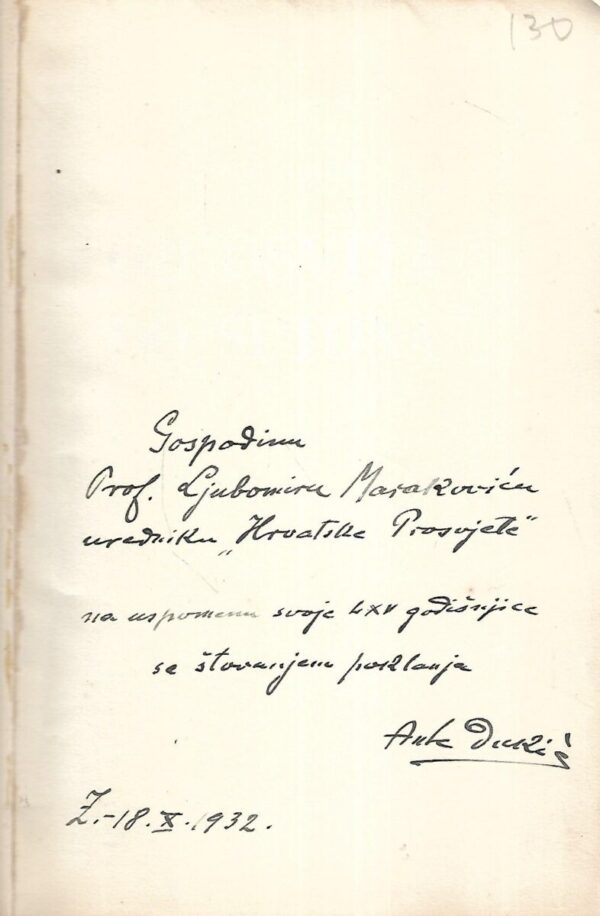 130
Gospodinu
Prof. Ljubomiru Marakoviću
uredniku „Hrvatske Prosvjete"
na uspomenu svoje LXV godišnjice
se štovanjem poklanja
Ante Dukić
Z.-18.X.1932.